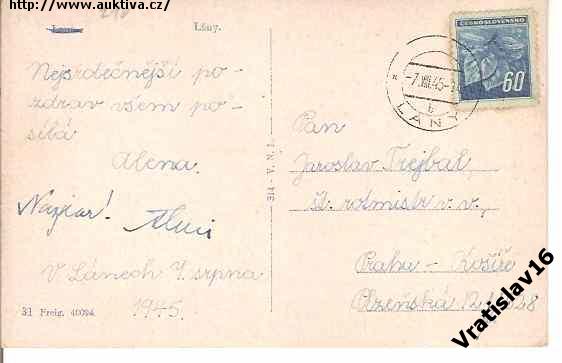 http://www.auktiva.cz/
Lány.
Nejsrdečnější po-
zdrav všem po-
sílá
Alena.
Nazdar!
V Lánech 7. srpna
1945.
31 Freig. 40094.
314 - V. N. J.
ČESKOSLOVENSKO
60
-7.VIII.45-
LÁNY
b
Pan
Jaroslav Trejbal,
št. rotmistr v. v.,
Praha - Košíře
Plzeňská
Vratislav16